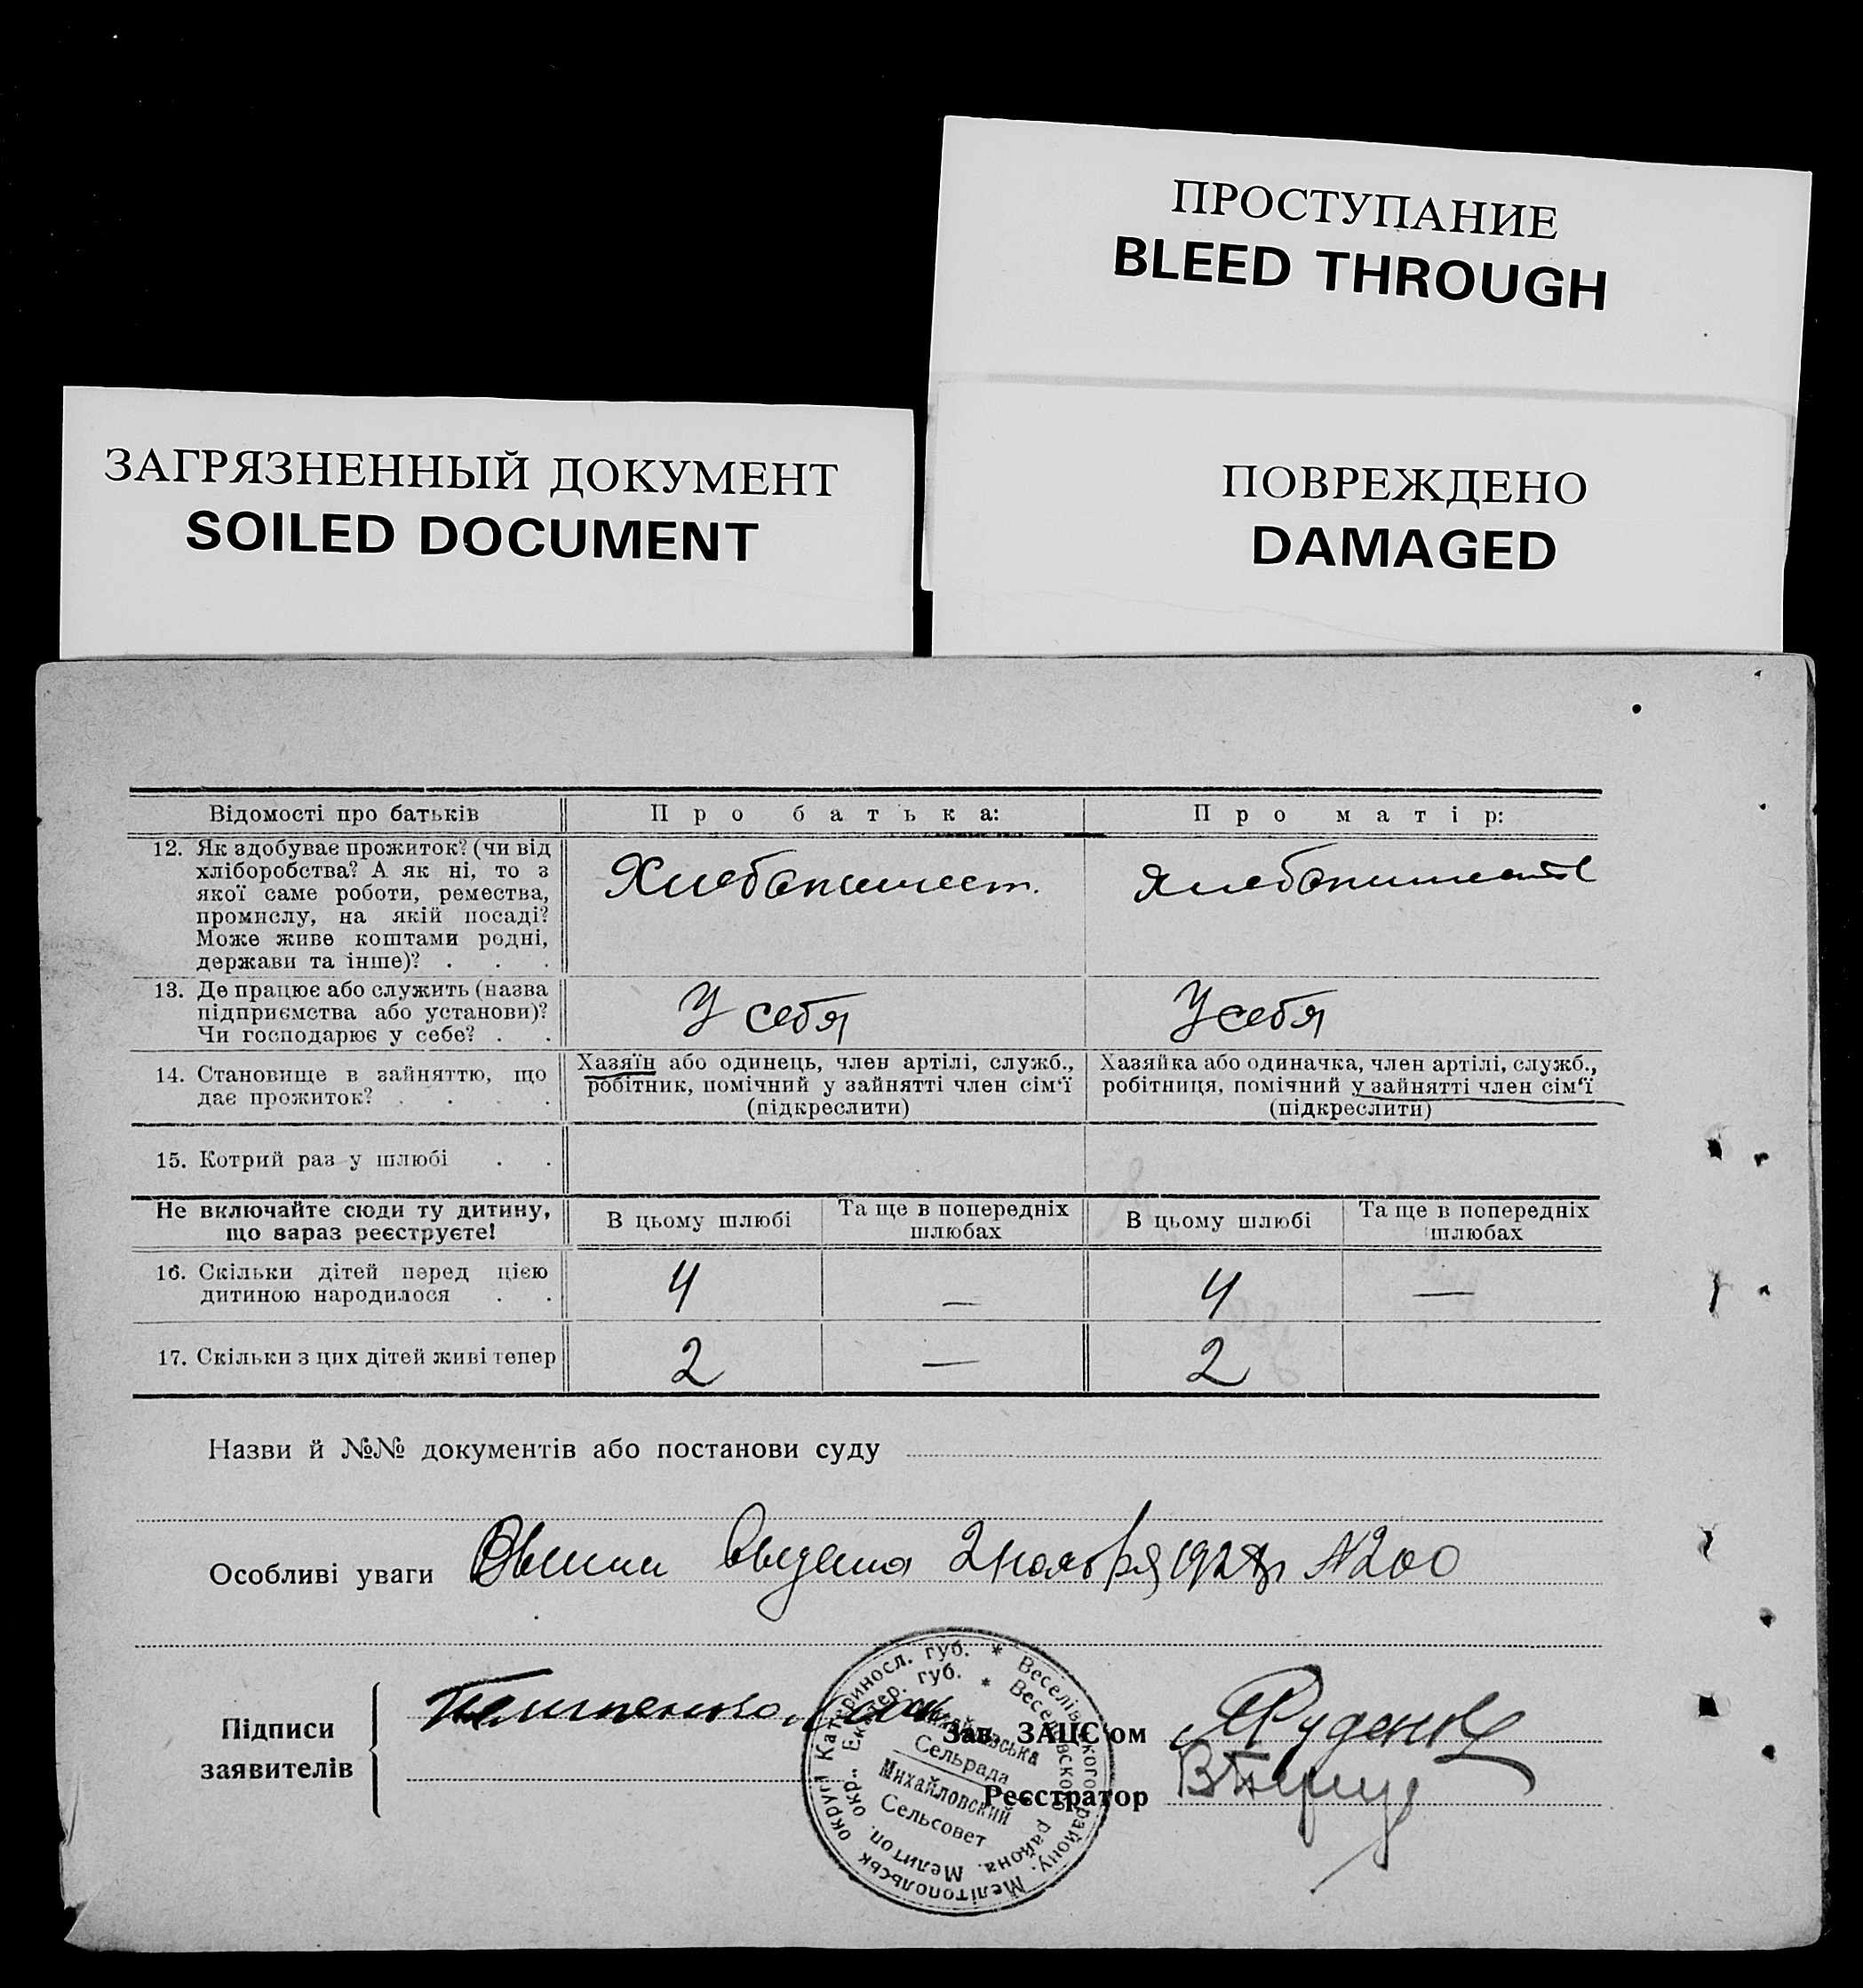 ПРОСТУПАНИЕ
BLEED THROUGH
ЗАГРЯЗНЕННЫЙ ДОКУМЕНТ
SOILED DOCUMENT
ПОВРЕЖДЕНО
DAMAGED
Відомості про батьків
Про батька:
Про матір:
12. Як здобуває прожиток? (чи від
хліборобства? А як ні, то з
якої саме роботи, ремества,
промислу, на якій посаді?
Може живе коштами родні,
держави та інше)? . . .
Хлебопашест.
Хлебопашест
13. Де працює або служить (назва
підприємства або установи)?
Чи господарює у себе? . .
У себя
У себя
14. Становище в зайняттю, що
дає прожиток? . . . .
Хазяїн або одинець, член артілі, служб.,
робітник, помічний у зайнятті член сім‘ї
(підкреслити)
Хазяйка або одиначка, член артілі, служб.,
робітниця, помічний у зайнятті член сім‘ї
(підкреслити)
15. Котрий раз у шлюбі . .
Не включайте сюди ту дитину,
що зараз реєструєте!
В цьому шлюбі
Та ще в попередніх
шлюбах
В цьому шлюбі
Та ще в попередніх
шлюбах
16. Скільки дітей перед цією
дитиною народилося . .
4
—
4
—
17. Скільки з цих дітей живі тепер
2
—
2
Назви й №№ документів або постанови суду
Особливі уваги выдана 2 ноября 192 г N200
Підписи
заявителів
Зав. ЗАЦС‘ом
Реєстратор
округи Катериносл. губ. * Веселівського району. Мелітопольськ
окр. Екатер. губ. * Веселовского района. Мелитоп.
Сельрада
Михайловский
Сельсовет